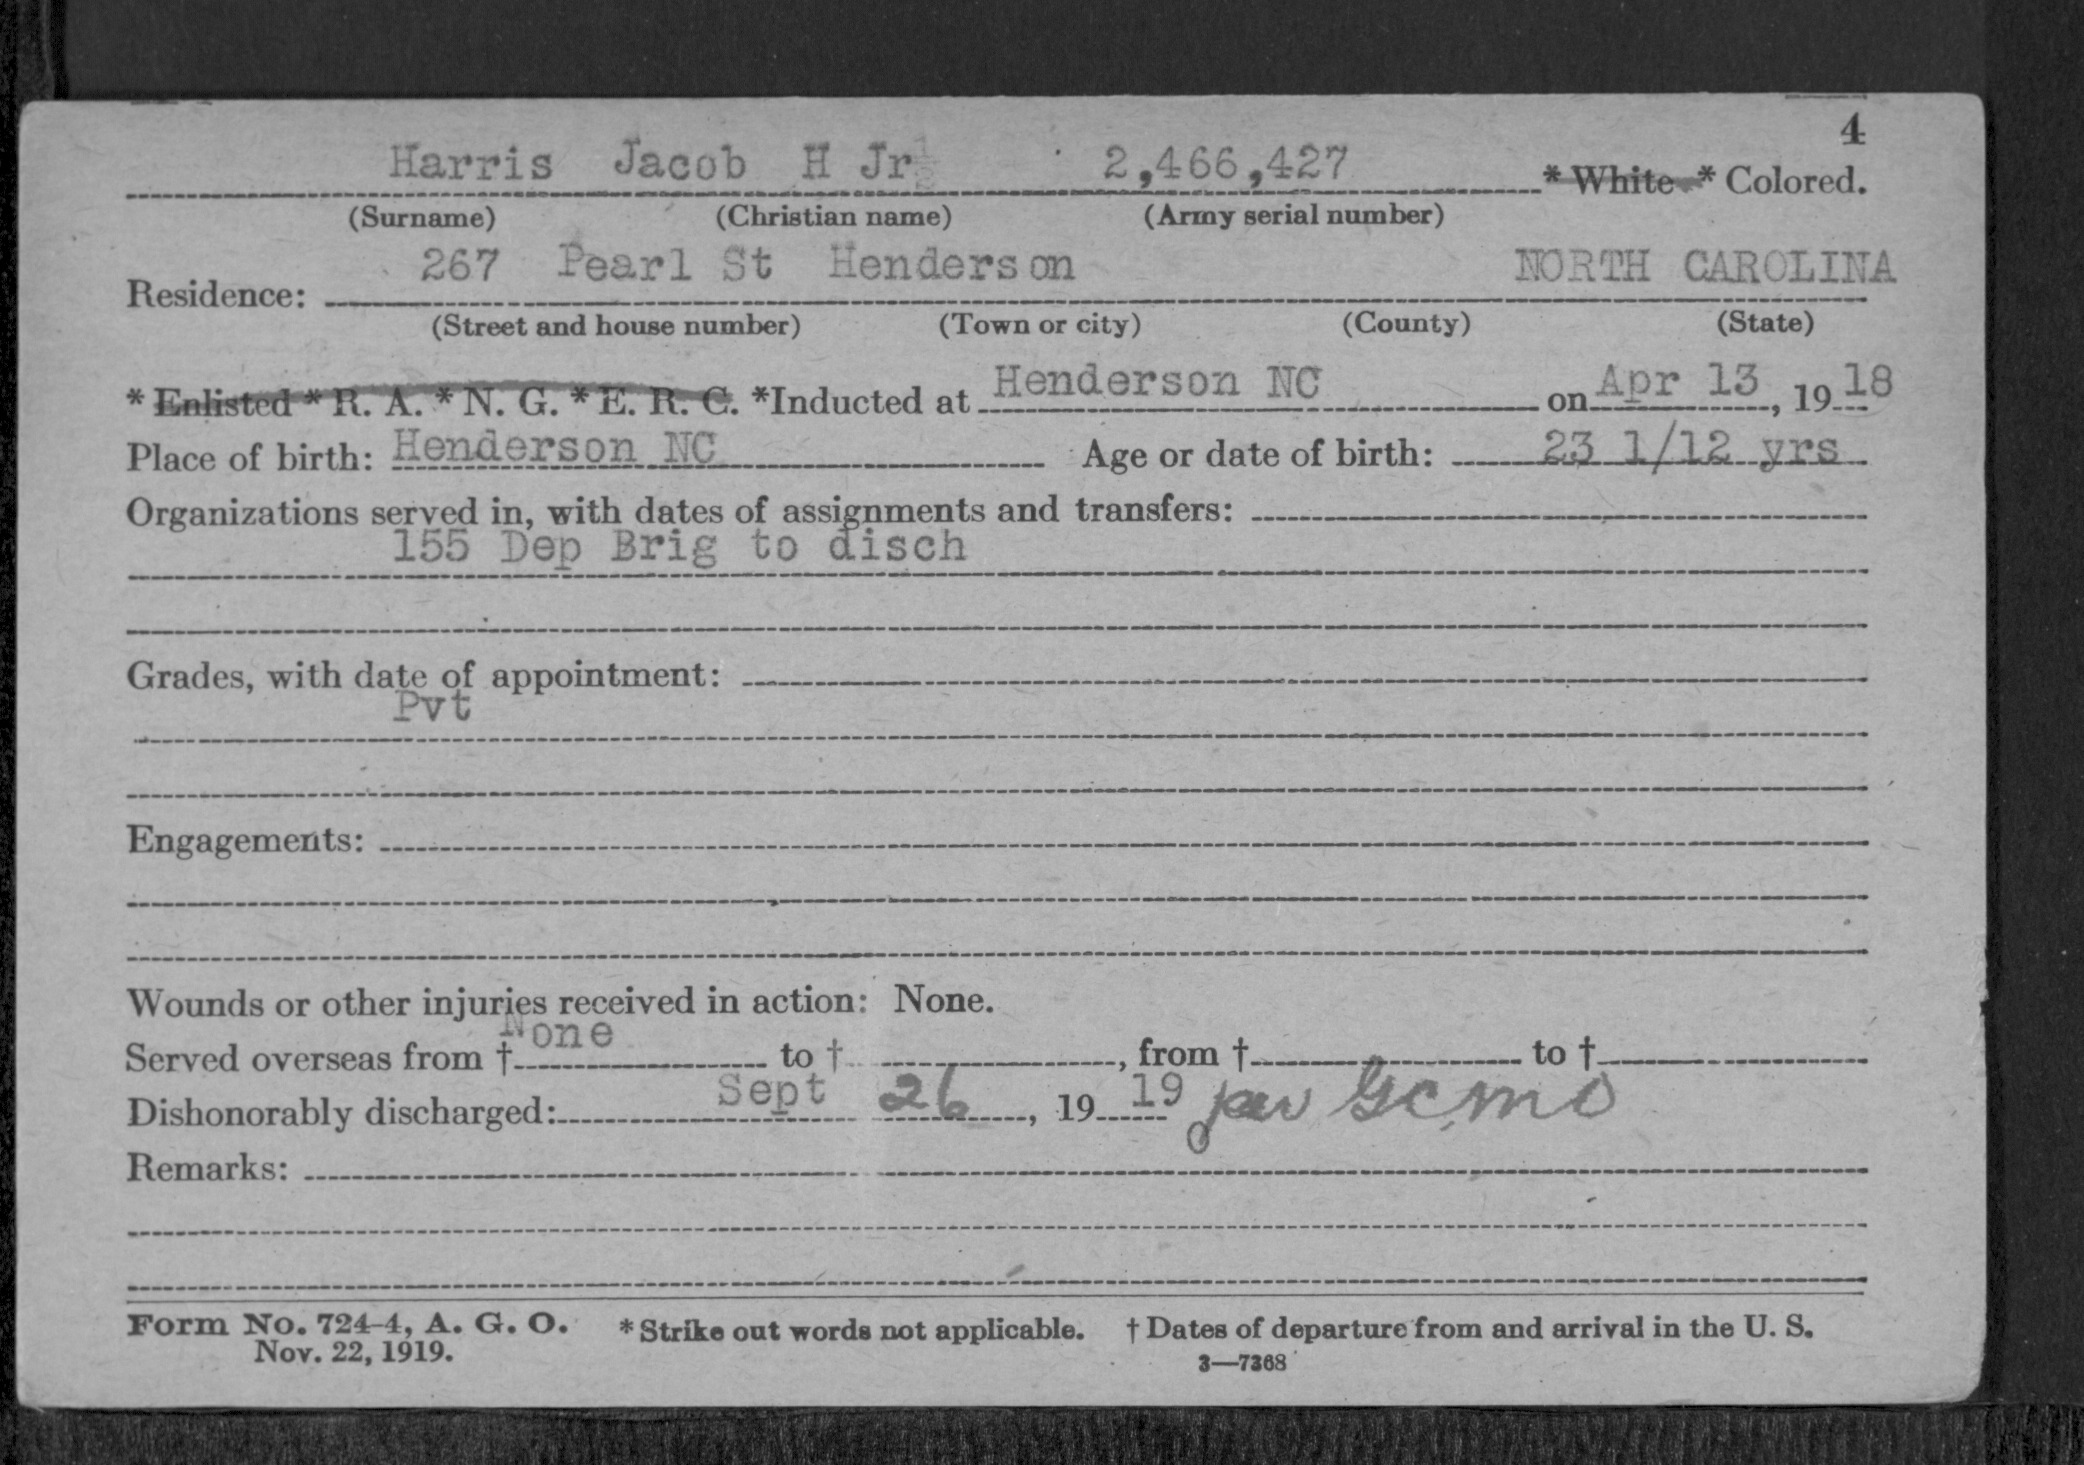 4
Harris Jacob H Jr½ 2,466,427 * White * Colored.
(Surname) (Christian name) (Army serial number)
267 Pearl St Henderson NORTH CAROLINA
Residence:
(Street and house number) (Town or city) (County) (State)
* Enlisted * R. A. * N. G. * E. R. C. *Inducted at Henderson NC on Apr 13, 1918
Place of birth: Henderson NC Age or date of birth: 23 1/12 yrs
Organizations served in, with dates of assignments and transfers:
155 Dep Brig to disch
Grades, with date of appointment:
Pvt
Engagements:
Wounds or other injuries received in action: None.
Served overseas from † None to †, from † to †
Dishonorably discharged: Sept 26, 1919 per GCMO
Remarks:
Form No. 724-4, A. G. O. *Strike out words not applicable. † Dates of departure from and arrival in the U. S.
Nov. 22, 1919. 3—7368